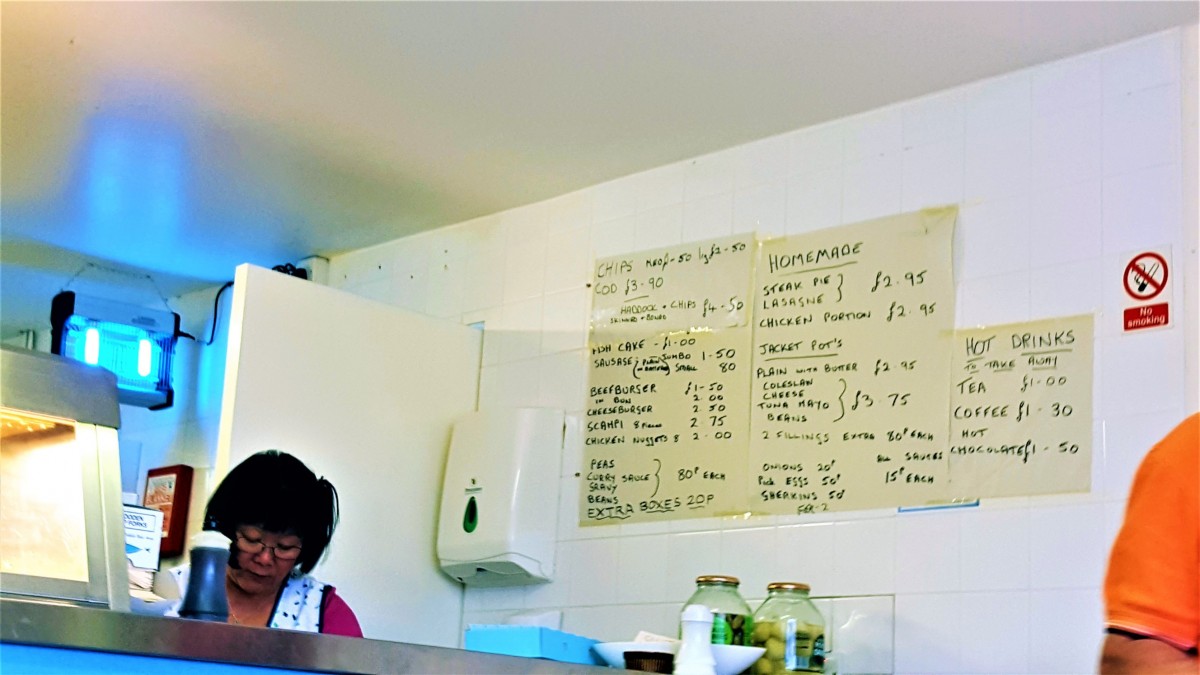 CHIPS MED £1-50 lg £2-50
COD £3-90
HADDOCK + CHIPS £4-50
SKINNED + BONED
FISH CAKE - £1-00
SAUSAGE PLAIN JUMBO 1-50
SMALL 80
BEEFBURGER £1-50
IN BUN 2.00
CHEESEBURGER 2.50
SCAMPI 8 Pieces 2.75
CHICKEN NUGGETS 8 2-00
PEAS
CURRY SAUCE
GRAVY
80P EACH
BEANS
EXTRA BOXES 20P
HOMEMADE
STEAK PIE
LASAGNE
£2.95
CHICKEN PORTION £2.95
JACKET POT'S
PLAIN WITH BUTTER £2.95
COLESLAW
CHEESE
TUNA MAYO
BEANS
£3.75
2 FILLINGS EXTRA 80P EACH
ONIONS 20P
Pick EGGS 50P
GHERKINS 50P
FOR-2
ALL SAUCES
15P EACH
HOT DRINKS
TO TAKE AWAY
TEA £1-00
COFFEE £1-30
HOT
CHOCOLATE £1-50
No
smoking